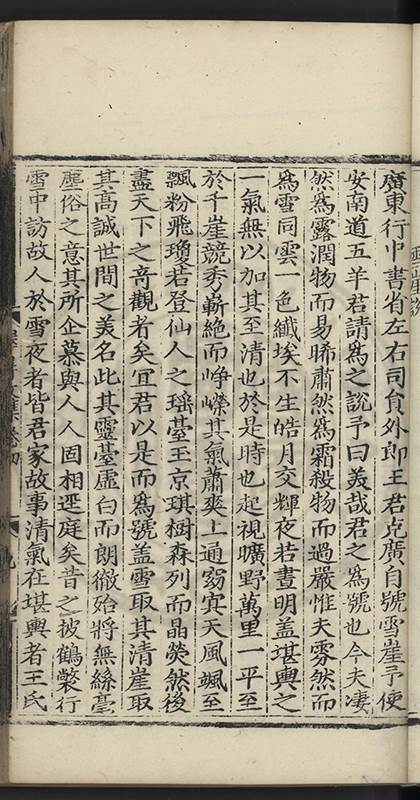 廣東行中書省左右司貟外郎王君克廣自號雪崖予使
安南道五羊君請爲之說予曰美哉君之爲號也今夫淒
然爲露潤物而易晞肅然爲霜殺物而過嚴惟夫雱然而
爲雪同雲一色纖埃不生皓月交輝夜若晝明盖堪輿之
一氣無以加其至清也於是時也起視曠野萬里一平至
於千崖競秀嶄絶而崢嶸其氣蕭爽上通窈冥天風颯至
飄粉飛瓊若登仙人之瑶臺玉京琪樹森列而晶熒然後
盡天下之竒觀者矣冝君以是而爲號盖雪取其清崖取
其高誠世間之美名此其靈臺虛白而朗徹殆將無絲毫
塵俗之意其所企慕與人人固相逕庭矣昔之披鶴氅行
雪中訪故人於雪夜者皆君家故事清氣在堪輿者王氏